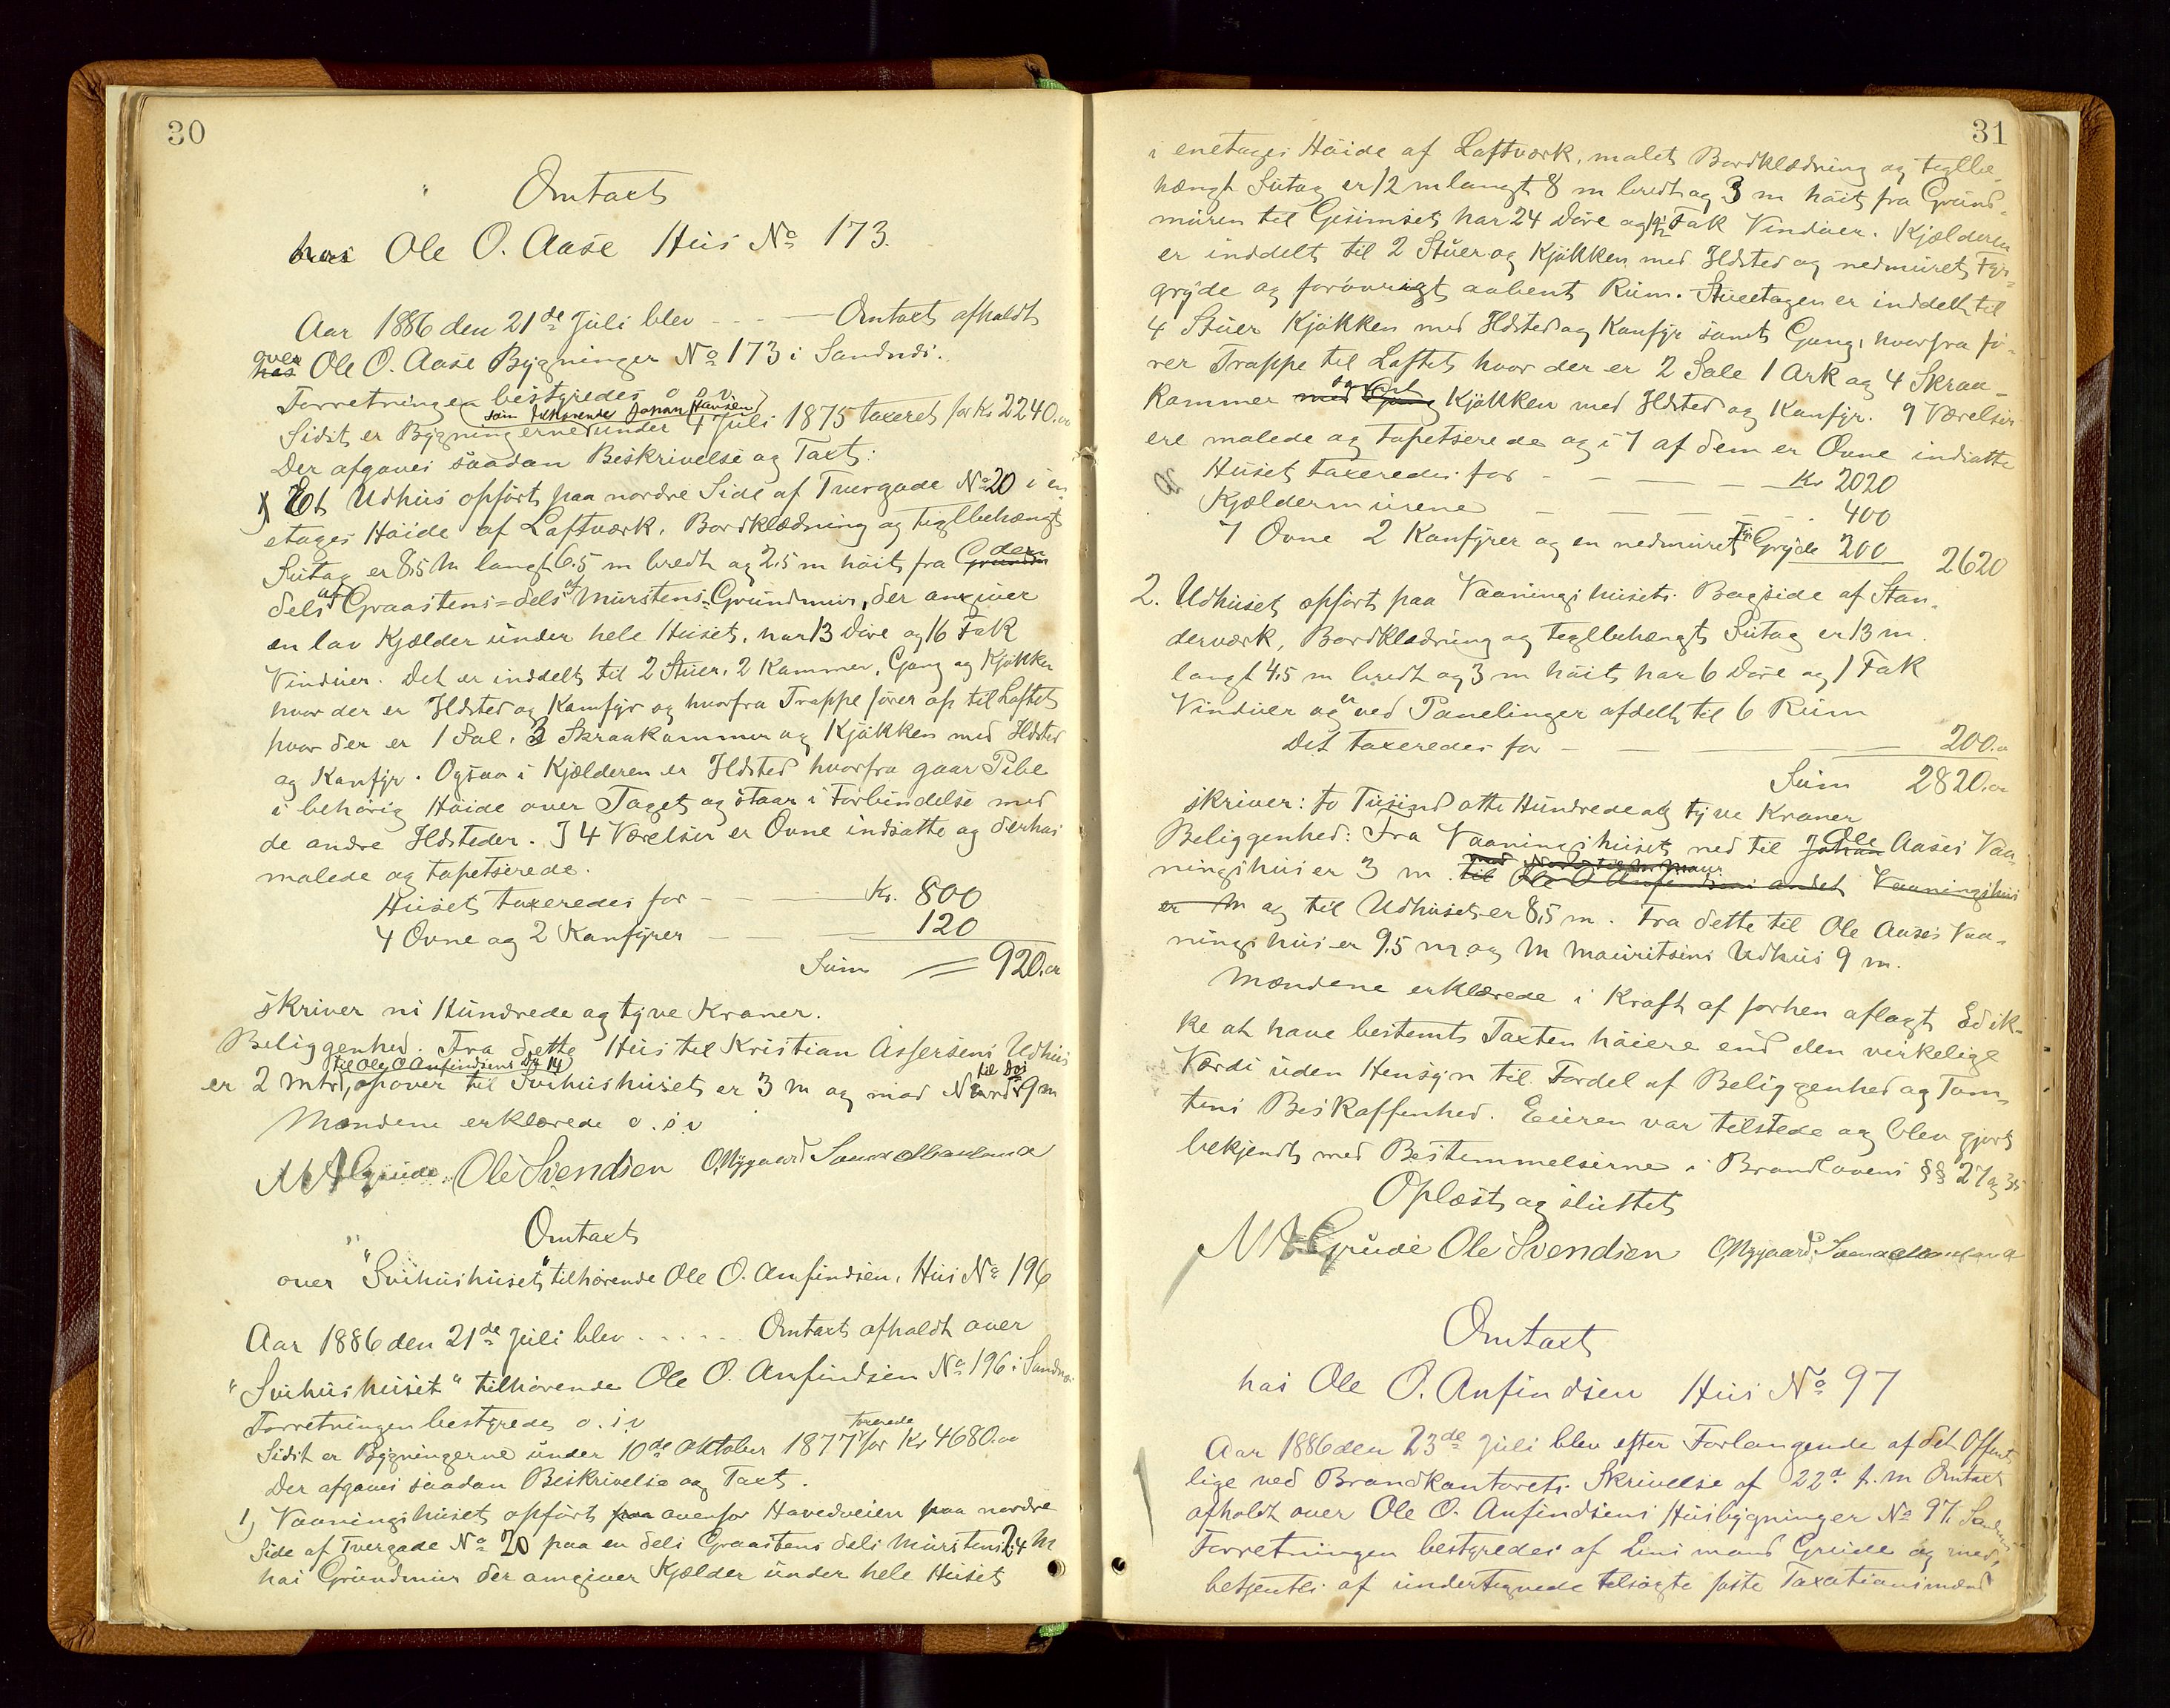 30
Omtaxt
hos Ole O. Aase Hus No 173.
Aar 1886 den 21de Juli blev - - - Omtaxt afholdt
over
hos Ole O. Aase Bygninger No 173 i Sandnds.
Forretningen bestyredes o. s. v.
som tilhørende Johan Hansen
Sidst er Bygningerne under 4 Juli 1875 taxeret for Kr 2240.00
Der afgaves saadan Beskrivelse og Taxt:
1) Et Udhus opført paa nordre Side af Tvergade No 20 i en
etages Høide af Laftværk, Bordklædning og teglbehængt
Sutag er 8.5 m langt 6.5 m bredt og 2.5 m høit fra den
Grunden
dels af Graastens= dels af Murstens=Grundmur, der omgiver
en lav Kjælder under hele Huset, har 13 Døre og 16 Fak
Vinduer. Det er inddelt til 2 Stuer, 2 Kammer, Gang og Kjøkken
hvor der er Ildsted og Komfyr og hvorfra Trappe fører op til Loftet
hvor der er 1 Sal, 3 Skraakammer og Kjøkken med Ildsted
og Komfyr. Ogsaa i Kjælderen er Ildsted hvorfra gaar Pibe
i behørig Høide over Taget og staar i Forbindelse med
de andre Ildsteder. I 4 Værelser er Ovne indsatte og derhos
malede og tapetserede.
Huset taxeredes for - - - Kr. 800
4 Ovne og 2 Komfyrer - - - 120
Sum = 920.00
skriver ni Hundrede og tyve Kroner.
Beliggenhed. Fra dette Hus til Kristian Assersens Udhus
til Ole O Anfindsens
er 2 mtr, opover til Svihushuset er 3 m og mod Nord 9 m
Mændene erklærede o. s. v
N A Grude Ole Svendsen O. Nygaard
Omtaxt
over "Svihushuset" tilhørende Ole O. Anfindsen, Hus No 196
Aar 1886 den 21de Juli blev . . . . . Omtaxt afholdt over
"Svihushuset" tilhørende Ole O. Anfindsen No 196 i Sandnæs
Forretningen bestyredes o. s. v
taxerede
Sidst er Bygningerne under 10de Oktober 1877 for Kr 4680.00
Der afgaves saadan Beskrivelse og Taxt.
1) Vaaningshuset opført paa ovenfor Hovedveien paa nordre
Side af Tvergade No 20 paa en dels Graastens dels Murstens 2.4 m
høi Grundmur der omgiver Kjælder under hele Huset
31
i enetages Høide af Laftværk, malet Bordklædning og teglbe-
hængt Sutag er 12 m langt 8 m bredt og 3 m høit fra Grund-
muren til Gesimset har 24 Døre og 19½ Fak Vinduer. Kjælderen
er inddelt til 2 Stuer og Kjøkken med Ildsted og nedmuret Fyr-
gryde og forøvrigt aabent Rum. Stueetagen er inddelt til
4 Stuer Kjøkken med Ildsted og Komfyr samt Gang, hvorfra fø-
rer Trappe til Loftet hvor der er 2 Sale 1 Ark og 4 Skraa-
Kammer med Kjøkken med Ildsted og Komfyr. 9 Værelser
ere malede og tapetserede og i 7 af dem er Ovne indsatte
Huset taxeredes for - - - Kr 2020
Kjældermurene - - - 400
7 Ovne 2 Komfyrer og en nedmuret Gryde 200 2620
2. Udhuset opført paa Vaaningshusets Bagside af Stan-
derværk, Bordklædning og teglbehængt Sutag er 13 m.
langt 4.5 m bredt og 3 m høit har 6 Døre og 1 Fak
Vinduer og er ved Panelinger afdelt til 6 Rum
Det taxeredes for - - - 200.00
Sum 2820.00
skriver: to Tusind otte Hundrede og tyve Kroner
Beliggenhed: Fra Vaaningshuset ned til Johan Ole Aases Vaa-
ningshus er 3 m. til Ole O Anfindsens andet Vaaningshus
er m og til Udhuset er 8.5 m. Fra dette til Ole Aases Vaa-
ningshus er 9.5 m og M Mauritsens Udhus 9 m.
Mændene erklærede i Kraft af forhen aflagt Ed ik-
ke at have bestemt Taxten høiere end den virkelige
Værdi uden Hensyn til Fordel af Beliggenhed og Tom-
tens Beskaffenhed. Eieren var tilstede og blev gjort
bekjendt med Bestemmelserne i Brandlovens §§ 27 og 35
Oplæst og sluttet
N A Grude Ole Svendsen O. Nygaard
Omtaxt
hos Ole O. Anfindsen Hus No 97
Aar 1886 den 23de Juli blev efter Forlangende af det Offent-
lige ved Brandkontorets Skrivelse af 22de f. m Omtaxt
afholdt over Ole O. Anfindsens Husbygninger No 97 i Sandnæs
Forretningen bestyredes af Lensmand Grude og med-
betjentes af undertegnede tilsagte faste Taxationsmænd